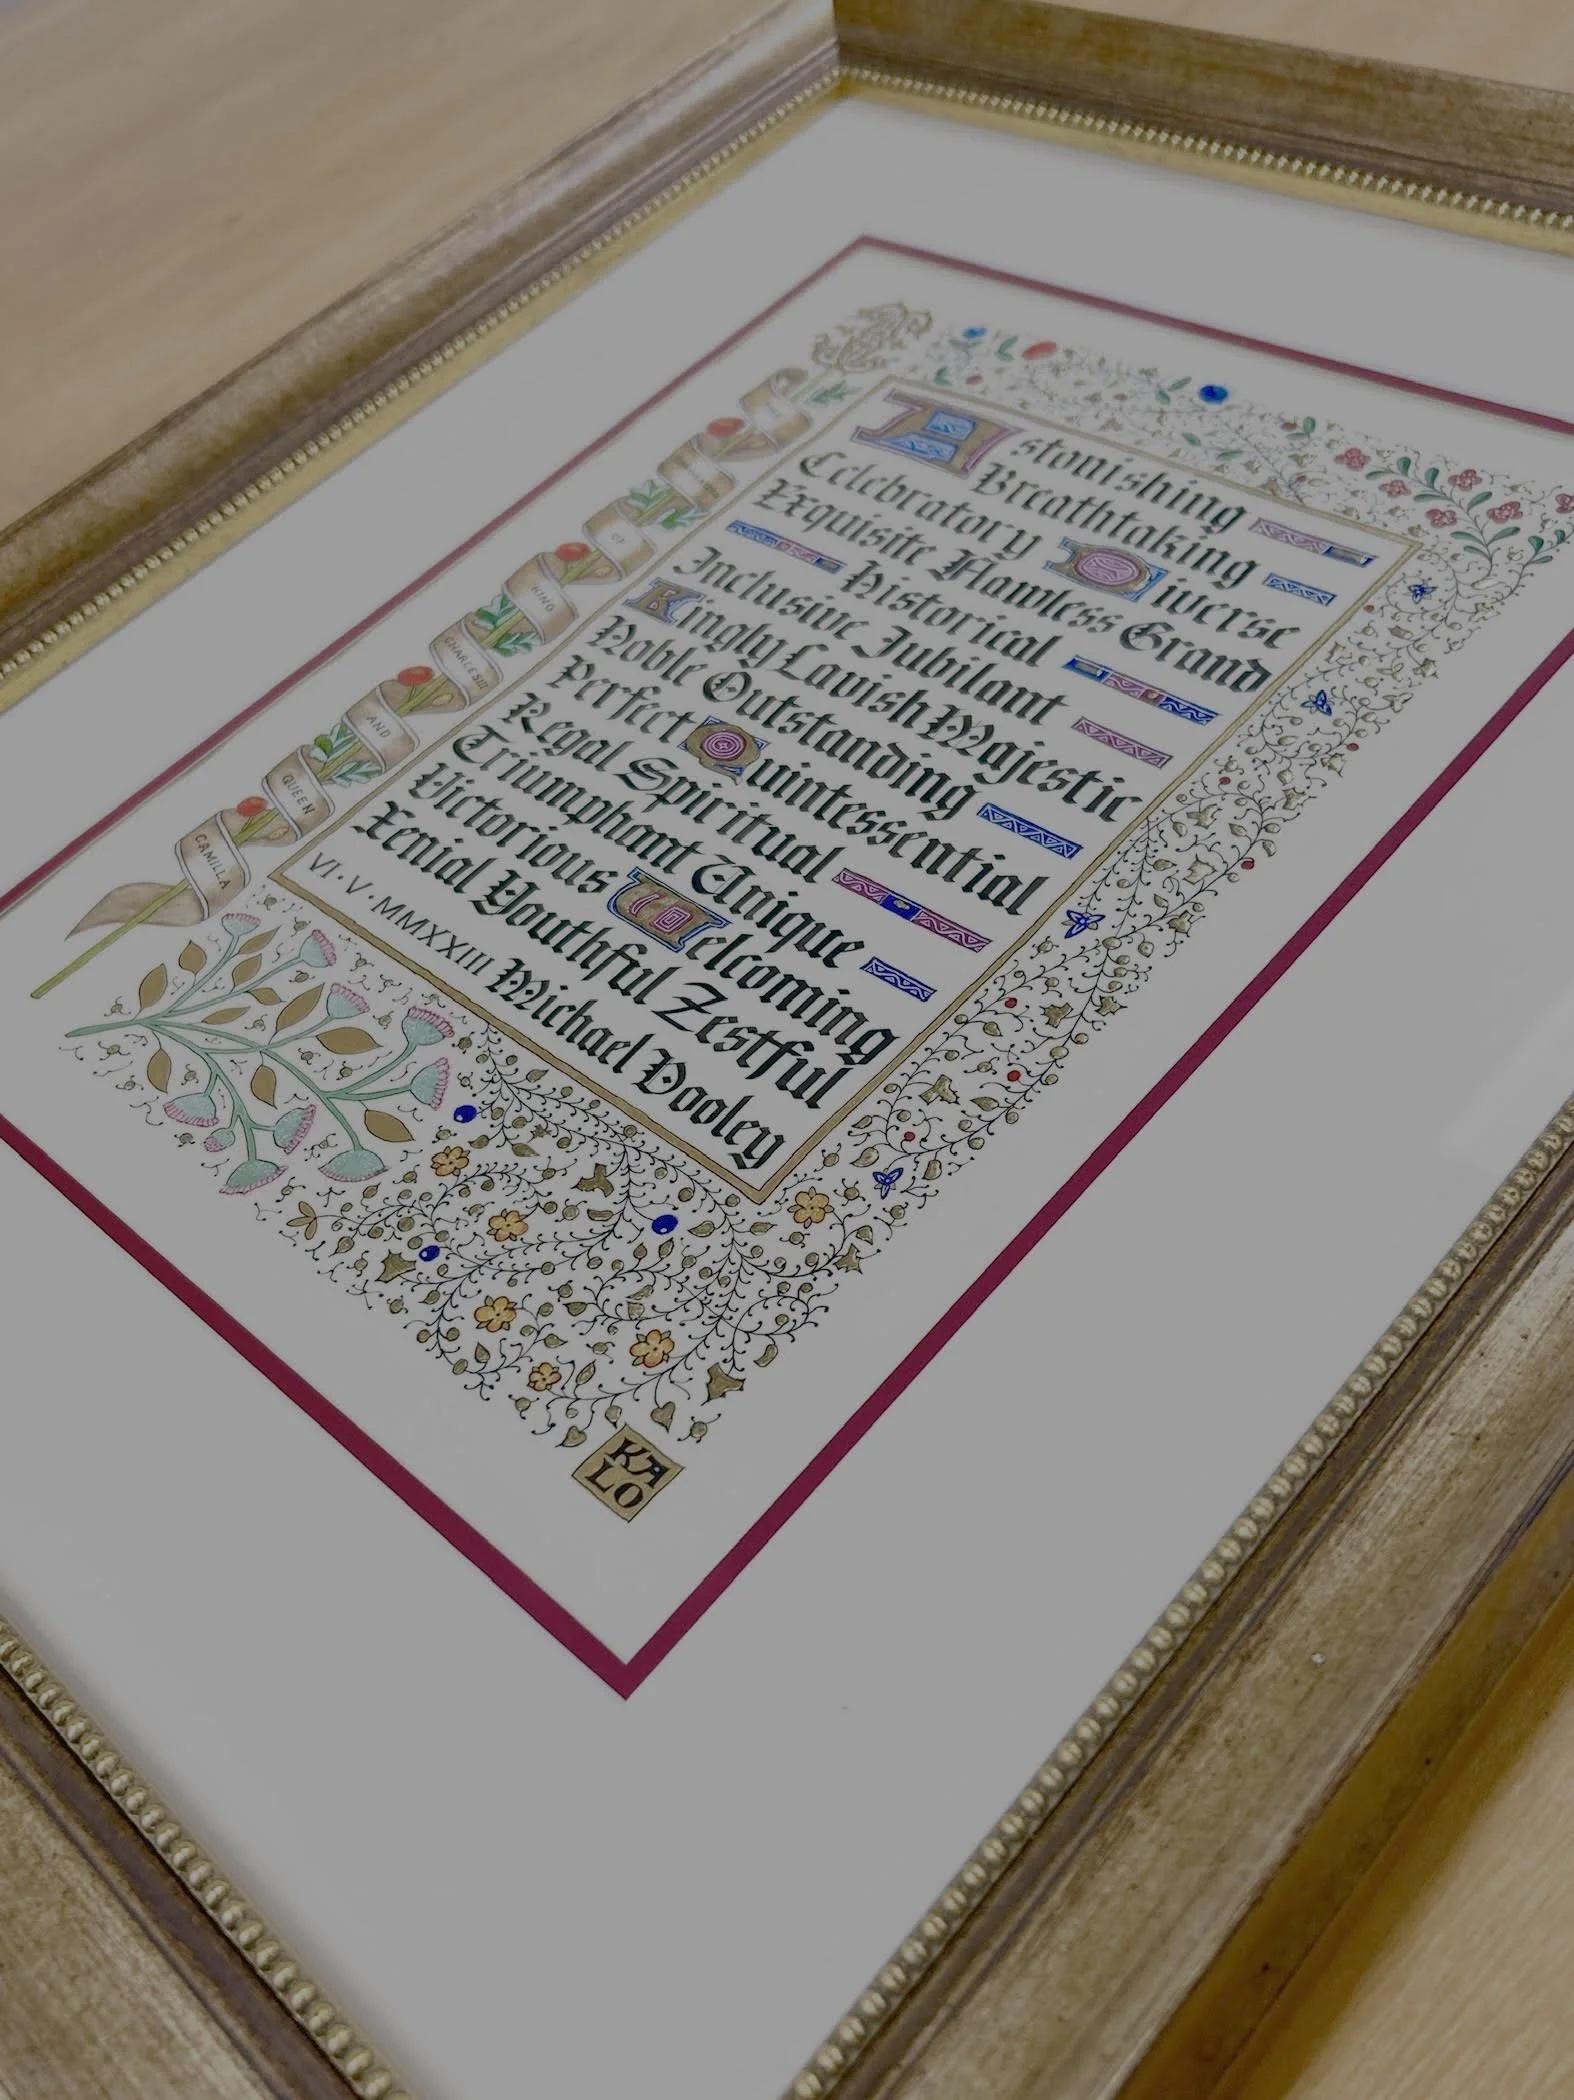 Astonishing
Breathtaking
Celebratory Diverse
Exquisite Flawless Grand
Historical
Inclusive Jubilant
Kingly Lavish Majestic
Noble Outstanding
Perfect Quintessential
Regal Spiritual
Triumphant Unique
Victorious Welcoming
Xenial Youthful Zestful
VI·V·MMXXIII Michael
OF
KING
CHARLES III
AND
QUEEN
CAMILLA
KA
LO